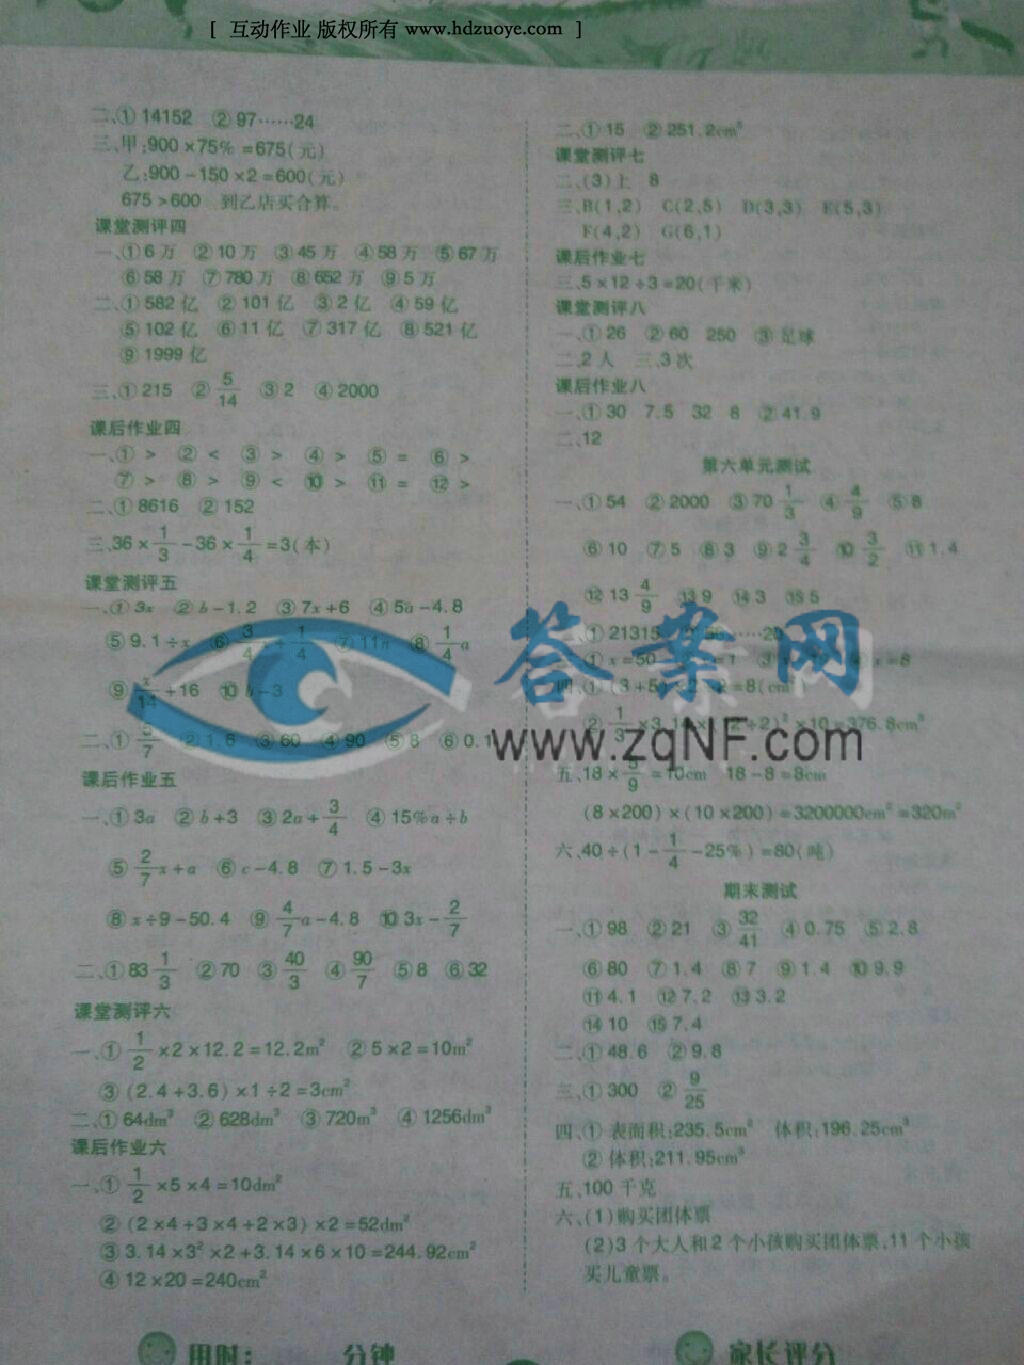 [ 互动作业 版权所有 www.hdzuoye.com ]
二、① 14152 ② 97……24
三、甲:900×75%=675(元)
乙:900-150×2=600(元)
675>600 到乙店买合算。
课堂测评四
一、①6万 ②10万 ③45万 ④58万 ⑤67万
⑥58万 ⑦780万 ⑧652万 ⑨5万
二、①582亿 ②101亿 ③2亿 ④59亿
⑤102亿 ⑥11亿 ⑦317亿 ⑧521亿
⑨1999亿
三、①215 ②5/14 ③2 ④2000
课后作业四
一、①> ②< ③> ④> ⑤= ⑥>
⑦> ⑧> ⑨< ⑩> ⑪= ⑫>
二、①8616 ②152
三、36×1/3-36×1/4=3(本)
课堂测评五
一、①3x ②b-1.2 ③7x+6 ④5a-4.8
⑤9.1÷x ⑥3/4 1/4 ⑦11n ⑧1/4a
⑨x/14+16 ⑩b-3
二、① /7 ②1.6 ③60 ④90 ⑤8 ⑥0.1
课后作业五
一、①3a ②b+3 ③2a+3/4 ④15%a÷b
⑤2/7x+a ⑥c-4.8 ⑦1.5-3x
⑧x÷9-50.4 ⑨4/7a-4.8 ⑩3x-2/7
二、①83 1/3 ②70 ③40/3 ④90/7 ⑤8 ⑥32
课堂测评六
一、①1/2×2×12.2=12.2m² ②5×2=10m²
③(2.4+3.6)×1÷2=3cm²
二、①64dm³ ②628dm³ ③720m³ ④1256dm³
课后作业六
一、①1/2×5×4=10dm²
②(2×4+3×4+2×3)×2=52dm²
③3.14×3²×2+3.14×6×10=244.92cm²
④12×20=240cm²
二、①15 ②251.2cm³
课堂测评七
二、(3)上 8
三、B(1,2) C(2,5) D(3,3) E(5,3)
F(4,2) G(6,1)
课后作业七
三、5×12÷3=20(千米)
课堂测评八
一、①26 ②60 250 ③足球
二、2人 三、3次
课后作业八
一、①30 7.5 32 8 ②41.9
二、12
第六单元测试
一、①54 ②2000 ③70 1/3 ④4/9 ⑤8
⑥10 ⑦5 ⑧3 ⑨2 3/4 ⑩3/2 ⑪1.4
⑫13 4/9 ⑬9 ⑭3 ⑮5
二、①21315 ……20
三、①x=50 =1 ③ x=8
四、①(3+5)×2÷2=8(cm²)
②1/3×3.14×(12÷2)²×10=376.8cm³
五、18×5/9=10cm 18-8=8cm
(8×200)×(10×200)=3200000cm²=320m²
六、40÷(1-1/4-25%)=80(吨)
期末测试
一、①98 ②21 ③32/41 ④0.75 ⑤2.8
⑥80 ⑦1.4 ⑧7 ⑨1.4 ⑩9.9
⑪4.1 ⑫7.2 ⑬3.2
⑭10 ⑮7.4
二、①48.6 ②9.8
三、①300 ②9/25
四、①表面积:235.5cm² 体积:196.25cm³
②体积:211.95cm³
五、100千克
六、(1)购买团体票
(2)3个大人和2个小孩购买团体票,11个小孩
买儿童票。
答案网
www.zqNF.com
用时: 分钟
家长评分